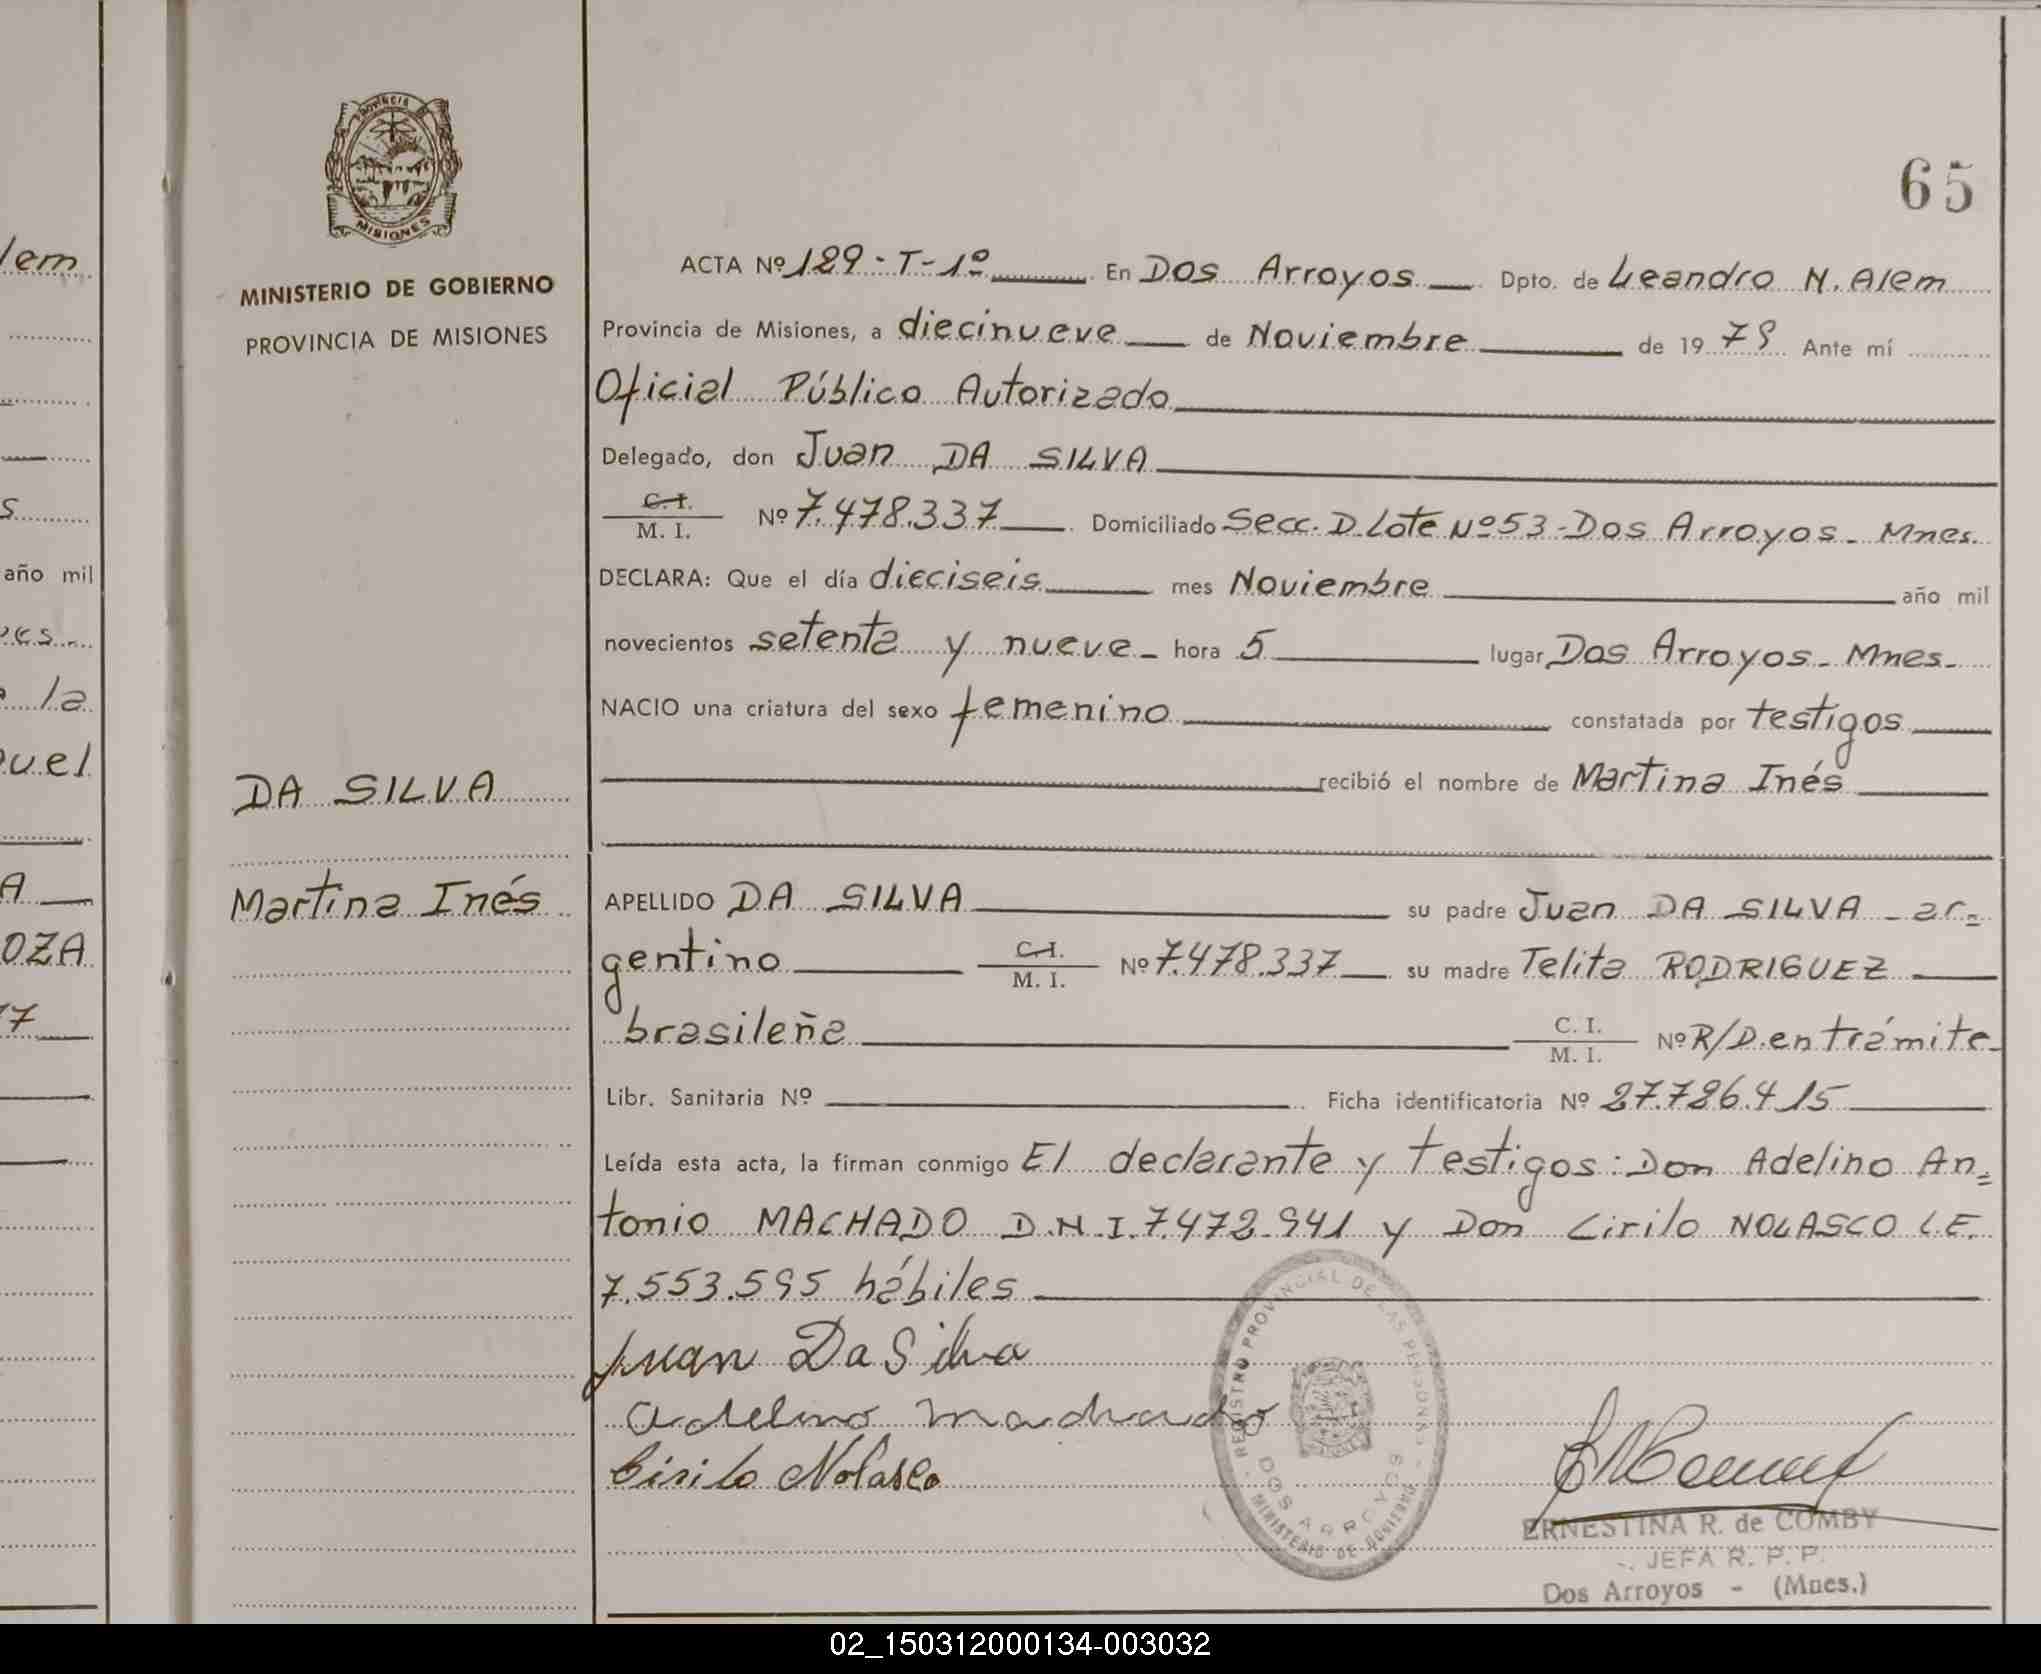 lem
S
año mil
la
uel
A
OZA
7
PROVINCIA DE
MISIONES
MINISTERIO DE GOBIERNO
PROVINCIA DE MISIONES
DA SILVA
Martina Inés
65
ACTA Nº 129-T-1º En Dos Arroyos Dpto. de Leandro N. Alem
Provincia de Misiones, a diecinueve de Noviembre de 1979 Ante mí
Oficial Público Autorizado
Delegado, don Juan DA SILVA
C.I.
M. I. Nº 7.478.337 Domiciliado Secc. D. Lote Nº 53-Dos Arroyos. Mnes.
DECLARA: Que el día dieciseis mes Noviembre año mil
novecientos setenta y nueve - hora 5 lugar Dos Arroyos. Mnes.
NACIO una criatura del sexo femenino constatada por testigos
recibió el nombre de Martina Inés
APELLIDO DA SILVA su padre Juan DA SILVA - ar=
gentino C.I. M. I. Nº 7.478.337 su madre Telita RODRIGUEZ
brasileña C. I. M. I. Nº R/D. en trámite
Libr. Sanitaria Nº Ficha identificatoria Nº 27.786.415
Leída esta acta, la firman conmigo El declarante y testigos: Don Adelino An=
tonio MACHADO D.N.I. 7.472.941 y Don Cirilo NOLASCO L.E.
7.553.595 hábiles
Juan Da Silva
Adelino Machado
Cirilo Nolasco
REGISTRO PROVINCIAL DE LAS PERSONAS
DOS ARROYOS
MINISTERIO DE GOBIERNO
ERNESTINA R. de COMBY
JEFA R. P. P.
Dos Arroyos - (Mnes.)
02_150312000134-003032